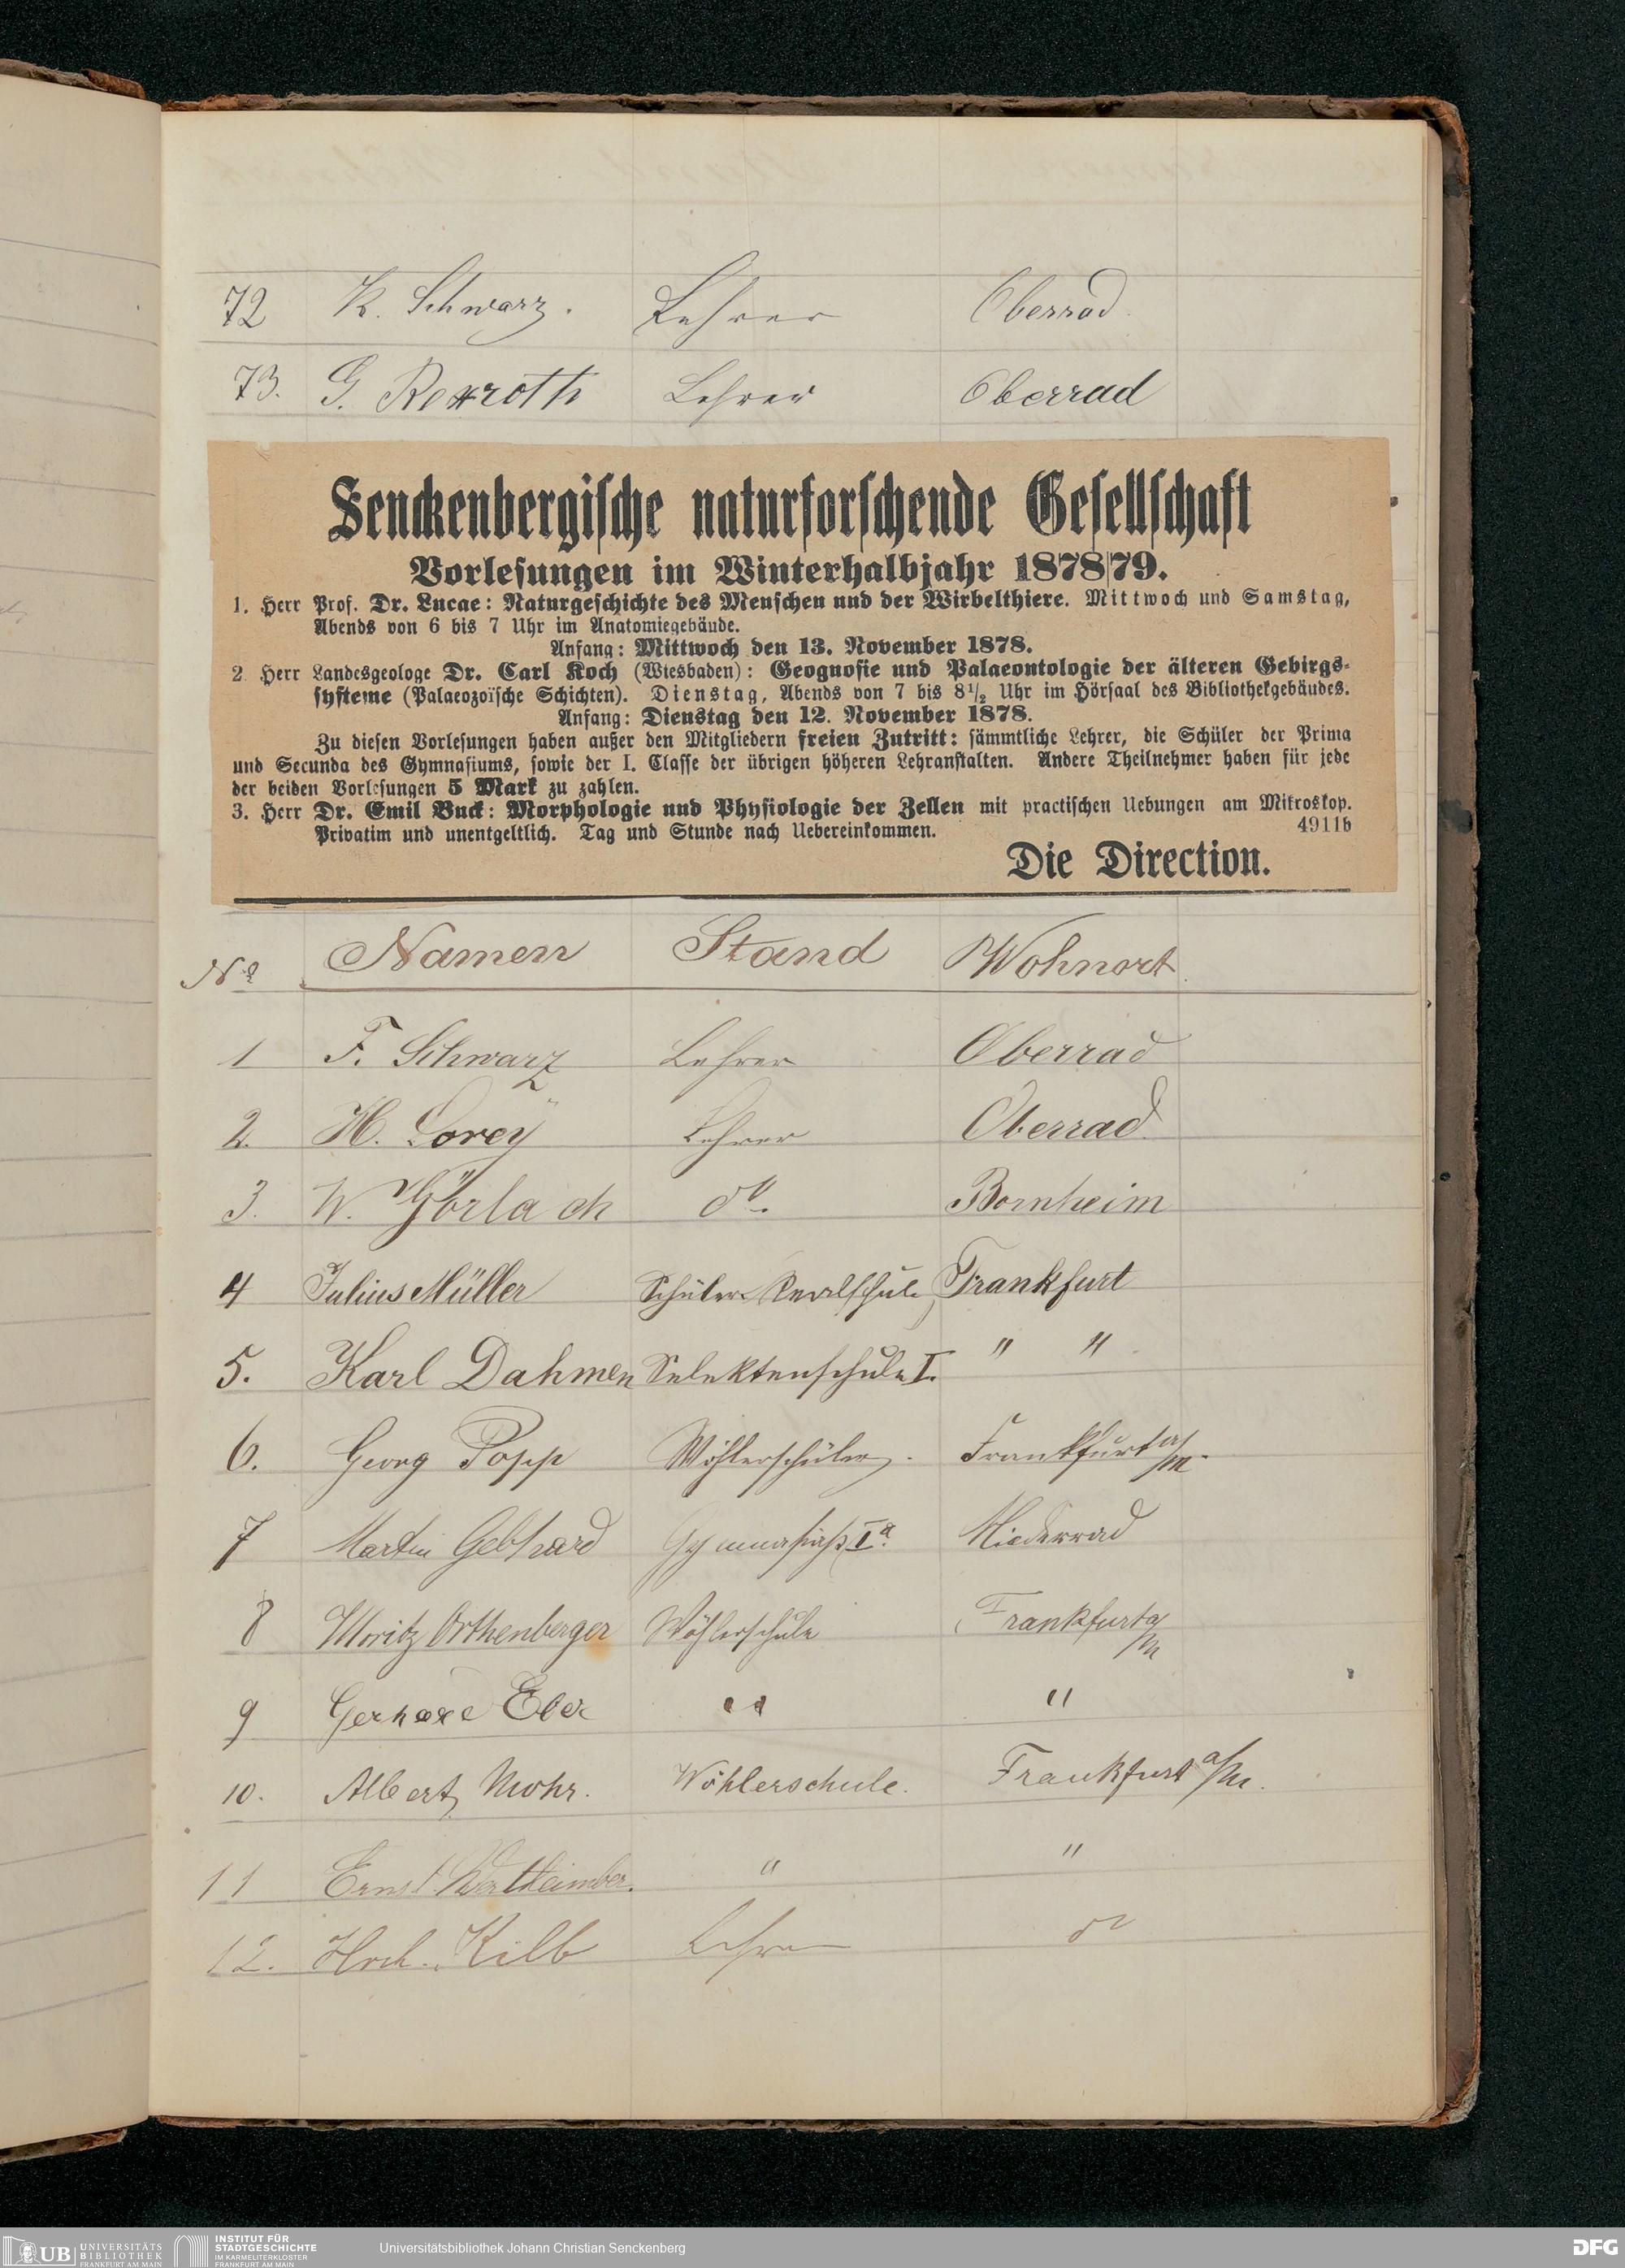 72 K. Schwarz. Lehrer Oberrad.
73. G. Rexroth Lehrer Oberrad
Senckenbergische naturforschende Gesellschaft
Vorlesungen im Winterhalbjahr 1878/79.
1. Herr Prof. Dr. Lucae: Naturgeschichte des Menschen und der Wirbelthiere. Mittwoch und Samstag,
Abends von 6 bis 7 Uhr im Anatomiegebäude.
Anfang: Mittwoch den 13. November 1878.
2 Herr Landesgeologe Dr. Carl Koch (Wiesbaden): Geognosie und Palaeontologie der älteren Gebirgs-
systeme (Palaeozoïsche Schichten). Dienstag, Abends von 7 bis 8½ Uhr im Hörsaal des Bibliothekgebäudes.
Anfang: Dienstag den 12. November 1878.
Zu diesen Vorlesungen haben außer den Mitgliedern freien Zutritt: sämmtliche Lehrer, die Schüler der Prima
und Secunda des Gymnasiums, sowie der I. Classe der übrigen höheren Lehranstalten. Andere Theilnehmer haben für jede
der beiden Vorlesungen 5 Mark zu zahlen.
3. Herr Dr. Emil Buck: Morphologie und Physiologie der Zellen mit practischen Uebungen am Mikroskop.
Privatim und unentgeltlich. Tag und Stunde nach Uebereinkommen. 4911b
Die Direction.
No Namen Stand Wohnort
1 F. Schwarz Lehrer Oberrad
2. H. Lorey Lehrer Oberrad
3. W. Görlach do. Bornheim
4 Julius Müller Schüler Realschule Frankfurt
5. Karl Dahmen Selektenschule I. " "
6. Georg Popp Wöhlerschüler. Frankfurt a/M.
7 Martin Gebhard Ia. Niederrad
8 Moritz Orthenberger Wöhlerschule Frankfurt a/M
9 " "
10. Albert Mohr. Wöhlerschule. Frankfurt a/M.
11 Ernst Wertheimber. " "
12. Hrch. Kilb Lehrer do
UB UNIVERSITÄTS BIBLIOTHEK FRANKFURT AM MAIN
INSTITUT FÜR STADTGESCHICHTE IM KARMELITERKLOSTER FRANKFURT AM MAIN
Universitätsbibliothek Johann Christian Senckenberg
DFG